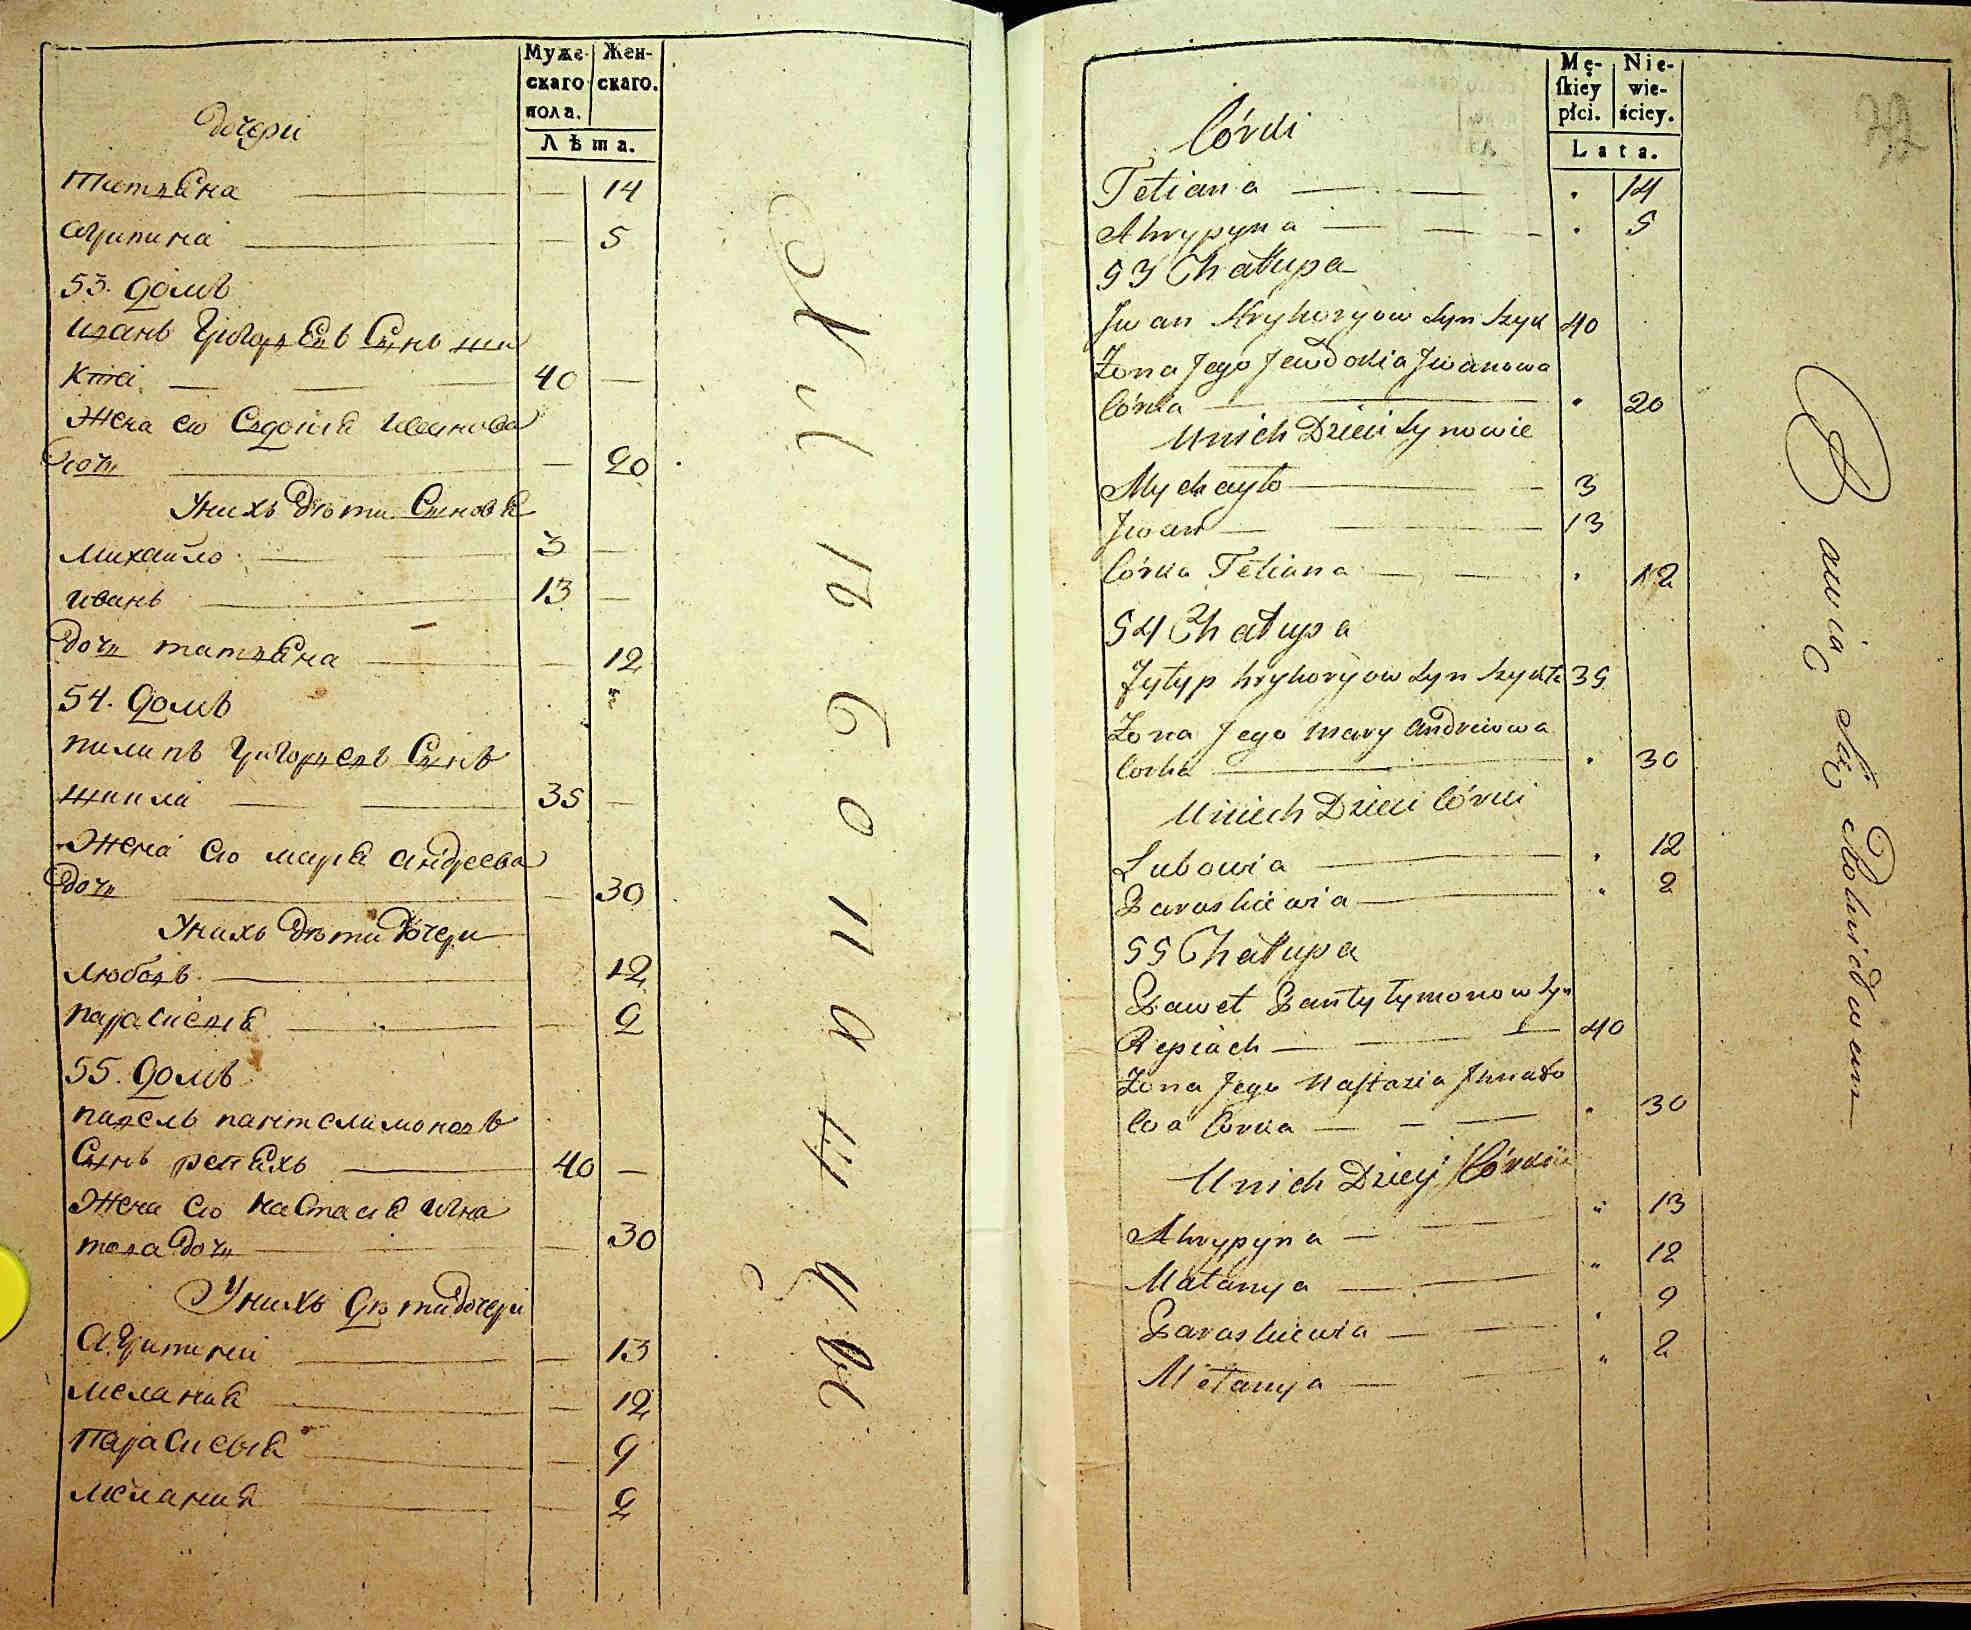 Муже-
скаго
пола.
Жен-
скаго.
Лѣта.
Дочери
Татияна — 14
Агрипина — 5
53. Домъ
Иванъ Григорьевъ Сынъ
40 —
Жена его Евдокия Иванова
Дочь — 20
У нихъ дѣти Сыновя
Михайло — 3 —
Иванъ — 13 —
Дочь Татияна — 12
54. Домъ
Пилипъ Григорьевъ Сынъ
35 —
Жена его Мария Андреева
Дочь — 30
У нихъ дѣти Дочери
Любовъ — 12
Параскевия — 2
55. Домъ
Павелъ Пантелимоновъ
Сынъ Репяхъ — 40 —
Жена его Настасия Игна
това Дочь — 30
У нихъ Дѣти Дочери
Агрипина — 13
Мелания — 12
Параскевия — 9
Мелания — 2
Mę-
skiey
płci.
Nie-
wie-
ściey.
Lata.
Córki
Tetiana — 14
Ahrypyna — 5
53 Chałupa
Jwan Hryhoryow Syn 40
Żona Jego Jewdokia Jwanowa
Córka — 20
U nich Dzieci Synowie
Mychayło — 3
Jwan — 13
Córka Tetiana — 12
54 Chałupa
Fyłyp Hryhoryow Syn 35
Żona Jego Mary Andreiowa
Corka — 30
U niech Dzieci Córki
Lubowia — 12
Paraskiewia — 2
55 Chałupa
Paweł Pantyłymonow Syn
Repiach — 40
Żona Jego Nastazia Jhnato
wa Corka — 30
U nich Dziecj Córkie
Ahrypyna — 13
Małanya — 12
Paraskiewia — 9
Mełanya — 2